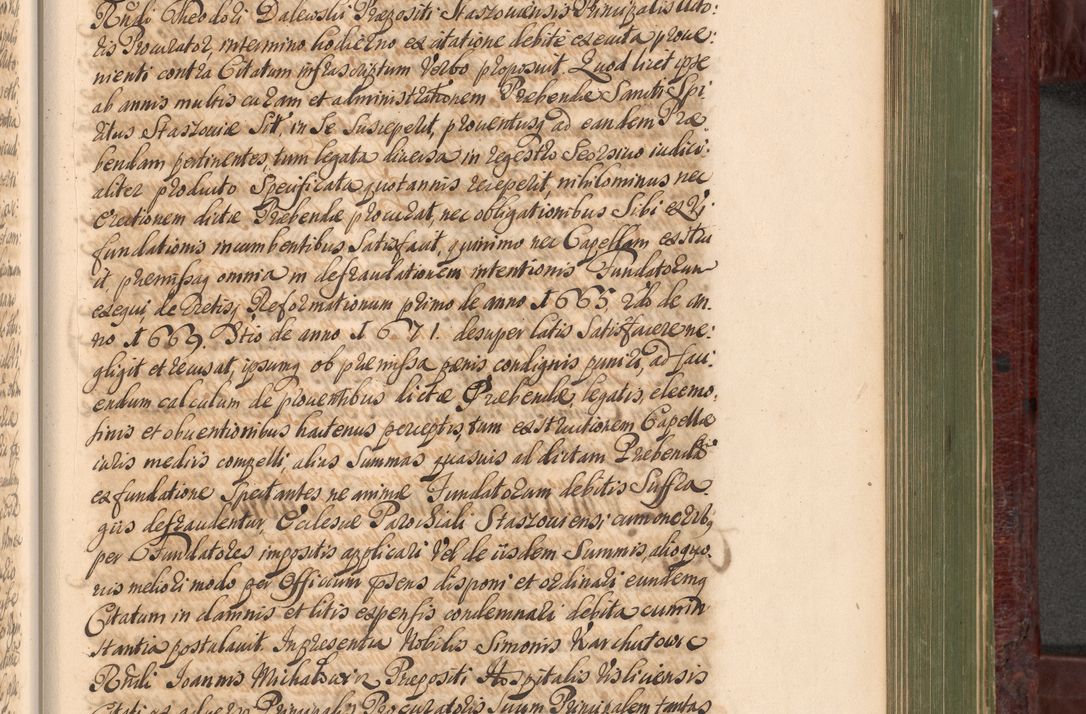 Rndi Theodori Dalewski Præpositi Staszoviensis Principalis
ris Procurator, in termino hodierno ex citatione debite executa prove:
nienti contra Citatum infrascriptum Verbo proposuit. Quod licet ipse
ab annis multis curam et administrationem Præbendæ Sancti Spi:
ritus Staszoviæ Sit, in Se Susceperit, proventusq ad eandem Præ
bendam pertinentes, tum legata diversa in regestro Seorsivo iudici:
aliter producto Specificata quotannis receperit, nihilominus nec
Erectionem dictæ Præbendæ procurat, nec obligationibus Sibi ex Vi
fundationis incumbentibus Satisfacit, quinimo nec Capellam exstru
it, præmissaq omnia in defraudationem intentionis Fundatorum
exequi, Decretisq Reformationum primo de anno 1665 2do de an:
no 1669. 3tio de anno 1671. desuper latis Satisfacere ne:
gligit et recusat, ipsumq ob præmissa pænis condignis puniri, ad faci
endum calculum de proventibus dictæ Præbendæ, legatis, eleemo,
sinis et obventionibus hactenus perceptis, tum exstructionem Capellæ
iuris mediis compelli, alias Summas quasvis ad dictam Præbendā
ex fundatione Spectantes ne animæ Fundatorum debitis Suffra
giis defraudentur, Ecclesiæ Parochiali Staszoviensi cum oneribq
per Fundatores impositis applicari Vel de iisdem Summis, alioquo
vis meliori modo per Officium præsens disponi et ordinari eundemq
Citatum in damnis et litis expensis condemnari debita cum in
stantia postulavit. In præsentia Nobilis Simonis Karchutowic
Rndi Joannis Michalsowic Præpositi Hospitalis Visliciensis
Citati ex adverso Principalis Procuratoris Suum Principalem tantas